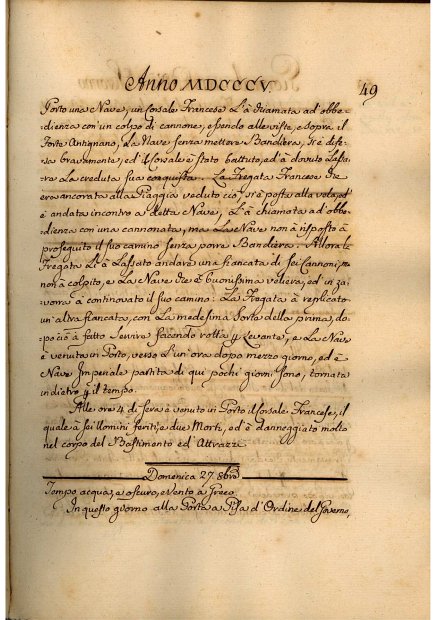 Anno MDCCCV.
49
Porto una Nave, un Corsale Francese L'à chiamata ad obbe=
=dienza con un colpo di cannone, essendo alle viste, e sopra il
Forte Antignano, La Nave senza mettere Bandiera, si è dife=
sa bravamente, ed il Corsale è stato battuto, ed à dovuto Lassa=
re La creduta sua conquista. La Fregata Francese che
era ancorata alla Piaggia veduto ciò, si è posta alla vela, ed
è andata incontro a detta Nave, L'à chiamata ad obbe=
=dienza con una cannonata, ma La Nave non à risposto à
proseguito il suo camino senza porre Bandiera. Allora la
Fregata Li à Lassato andare una fiancata di sei Cannoni,
non à colpito, e La Nave che è buonissima veliera, ed in za=
vorra à continovato il suo camino: La Fregata à replicato
un'altra fiancata, con La medesima Sorte della prima, do=
po ciò à fatto Servire facendo rotta Levante, e La Nave
è venuta in Porto, verso L'un'ora dopo mezzo giorno, ed è
Nave Imperiale partita di qui pochi giorni sono, tornata
indietro il tempo.
Alle ore 4 di sera è venuto in Porto il Corsale Francese, il
quale à sei Uomini feriti, e due Morti, ed è danneggiato molto
nel corpo del Bastimento ed'Attrazzi.
Domenica 27. 8bre
Tempo, acqua, e oscuro, e Vento à Greco
In questo giorno alla Porta a Pisa d'Ordine del Governo,